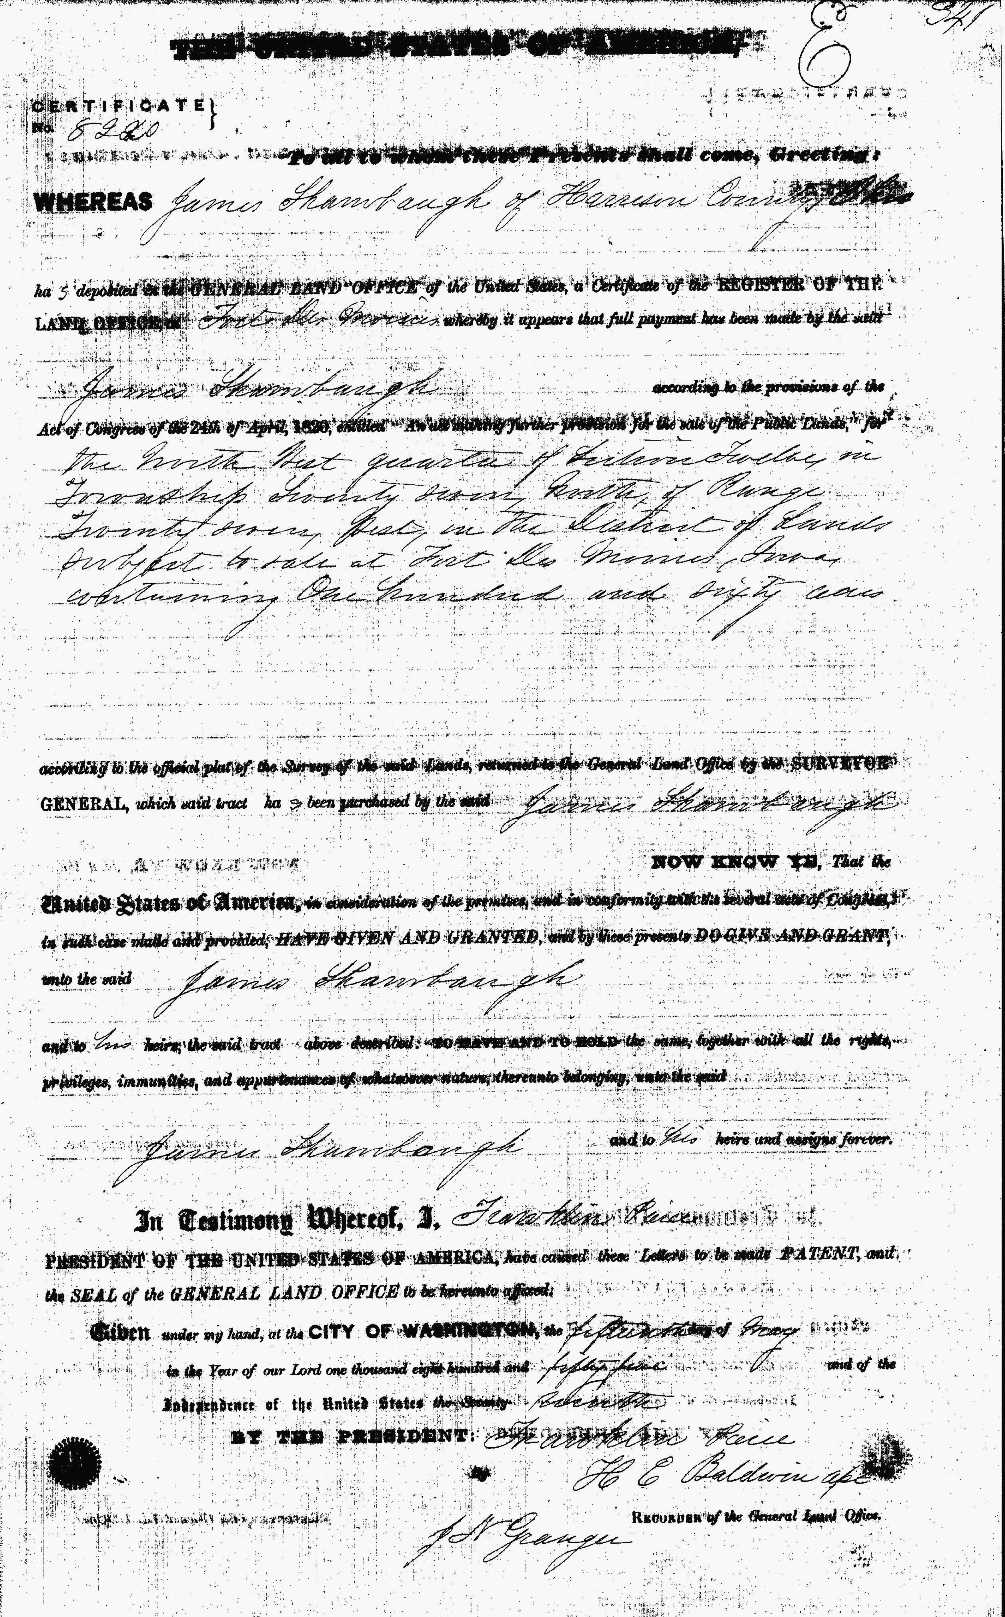 341
THE UNITED STATES OF AMERICA,
CERTIFICATE
No.
To all to whom these Presents shall come, Greeting:
WHEREAS James Shambaugh of Harrison County, Ohio
ha s deposited in the GENERAL LAND OFFICE of the United States, a Certificate of the REGISTER OF THE
LAND OFFICE at Fort Des Moines whereby it appears that full payment has been made by the said
James Shambaugh according to the provisions of the
Act of Congress of the 24th of April, 1820, entitled "An act making further provision for the sale of the Public Lands," for
the North West quarter of Section Twelve, in
Township Twenty seven, North, of Range
Twenty seven, West, in the District of Lands
subject to sale at Fort Des Moines, Iowa,
containing One hundred and sixty acres
according to the official plat of the Survey of the said Lands, returned to the General Land Office by the SURVEYOR
GENERAL, which said tract ha s been purchased by the said James Shambaugh
NOW KNOW YE, That the
United States of America, in consideration of the premises, and in conformity with the several acts of Congress,
in such case made and provided, HAVE GIVEN AND GRANTED, and by these presents DO GIVE AND GRANT,
unto the said James Shambaugh
and to his heirs, the said tract above described: TO HAVE AND TO HOLD the same, together with all the rights,
privileges, immunities, and appurtenances of whatsoever nature, thereunto belonging, unto the said
James Shambaugh and to his heirs and assigns forever.
In Testimony Whereof, I, Franklin Pierce
PRESIDENT OF THE UNITED STATES OF AMERICA, have caused these Letters to be made PATENT, and
the SEAL of the GENERAL LAND OFFICE to be hereunto affixed.
Given under my hand, at the CITY OF WASHINGTON, the fifteenth day of May
in the Year of our Lord one thousand eight hundred and fifty five and of the
Independence of the United States the Seventy ninth
BY THE PRESIDENT: Franklin Pierce
By H E Baldwin
J N Granger RECORDER of the General Land Office.